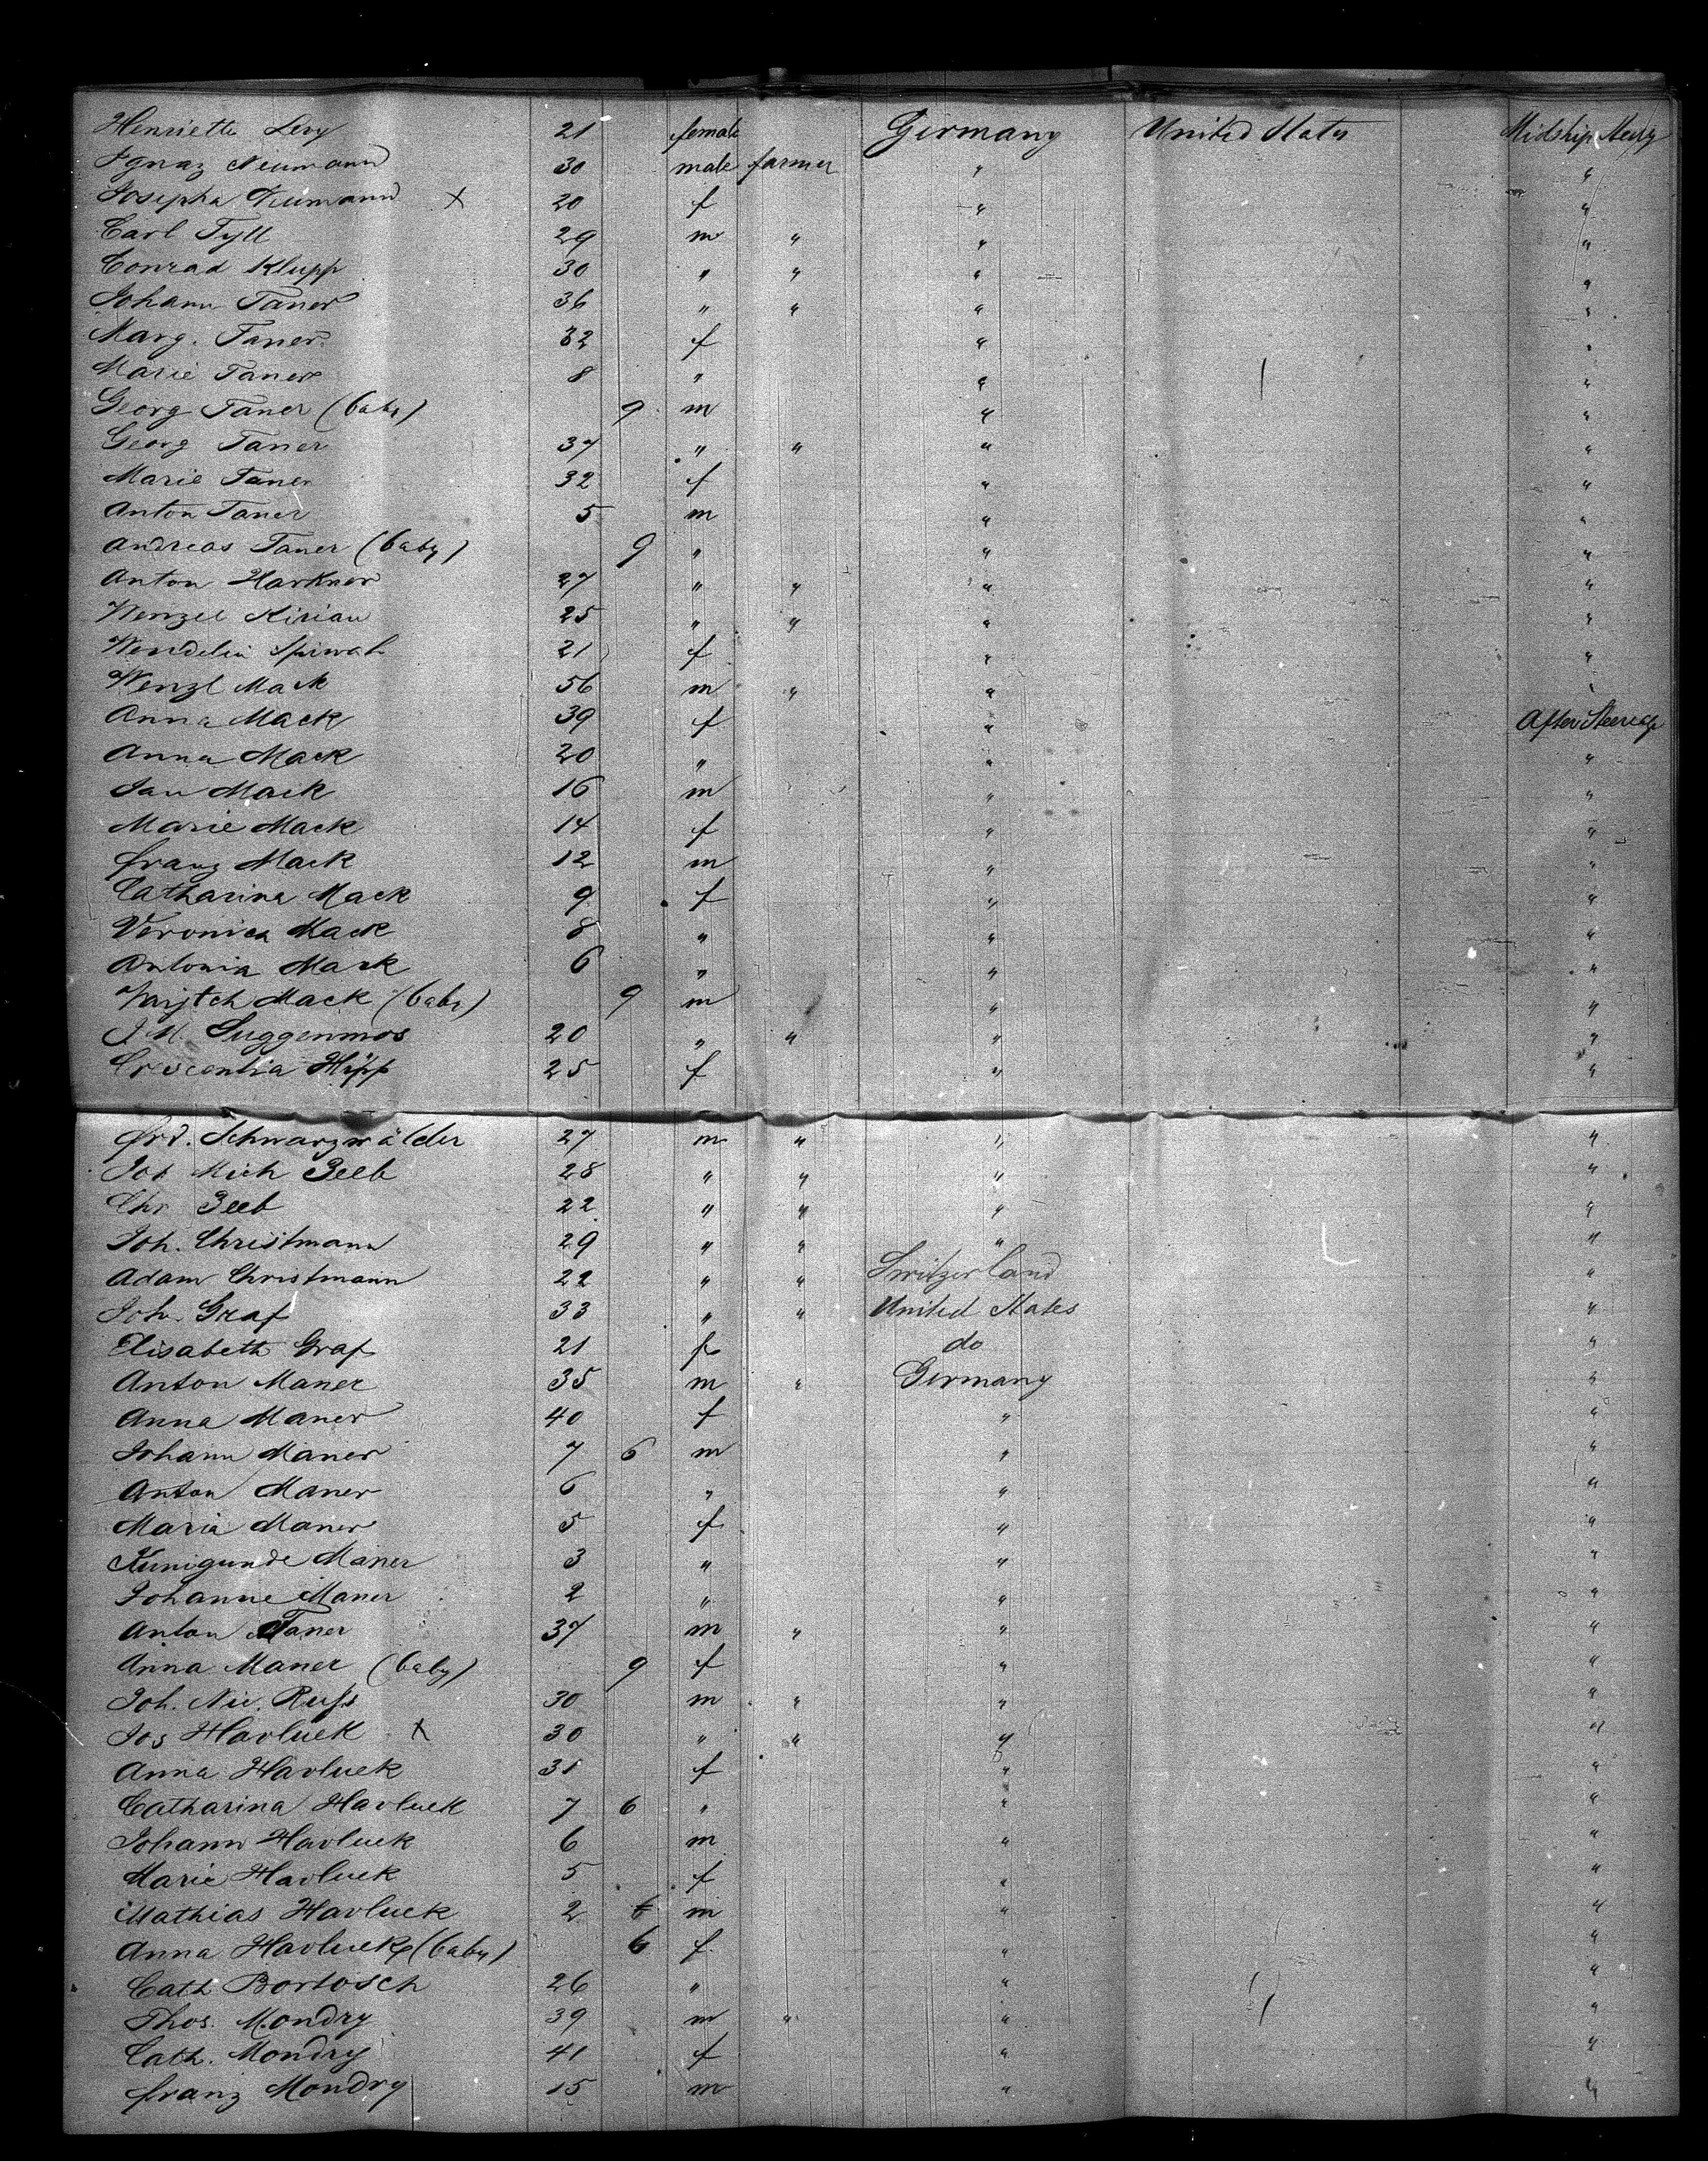 Henriette Levy 21 female Germany United States Midship
Ignaz Neumann 30 male farmer " "
Josepha Neumann X 20 f " "
Carl Tyll 29 m " " "
Conrad Klupp 30 " " " "
Johann Taner 36 " " " "
Marg. Taner 32 f " "
Marie Taner 8 " " "
Georg Taner (baby) 9 m " "
Georg Taner 37 " " " "
Marie Taner 32 f " "
Anton Taner 5 m " "
Andreas Taner (baby) 9 " " "
Anton Harkner 27 " " " "
Wenzel Kirian 25 " " " "
Wendelin 21 f " "
Wenzl Mack 56 m " " "
Anna Mack 39 f " After Steerage
Anna Mack 20 " " "
Jan Mack 16 m " "
Marie Mack 14 f " "
Franz Mack 12 m " "
Catharina Mack 9 f " "
Veronica Mack 8 " " "
Antonia Mack 6 " " "
Mack (baby) 9 m " "
J M. Suggenmos 20 " " " "
Crescentia Hipp 25 f " "
Frd. Schwarzwälder 27 m " " "
Joh Mich Zeeb 28 " " " "
Chr Zeeb 22 " " " "
Joh. Christmann 29 " " " "
Adam Christmann 22 " " Switzerland "
Joh. Graf 33 " " United States "
Elisabeth Graf 21 f do "
Anton Maner 35 m " Germany "
Anna Maner 40 f " "
Johann Maner 7 6 m " "
Anton Maner 6 " " "
Maria Maner 5 f " "
Kunigunde Maner 3 " " "
Johanne Maner 2 " " "
Anton Taner 37 m " " "
Anna Maner (baby) 9 f " "
Joh. Nic. Ruß 30 m " " "
Jos Havluek X 30 " " " "
Anna Havluek 31 f " "
Catharina Havluek 7 6 " " "
Johann Havluek 6 m " "
Marie Havluek 5 f " "
Mathias Havluek 2 6 m " "
Anna Havluek (baby) 6 f " "
Cath Bortosch 26 " " "
Thos. Mondry 39 m " " "
Cath. Mondry 41 f " "
Franz Mondry 15 m " "